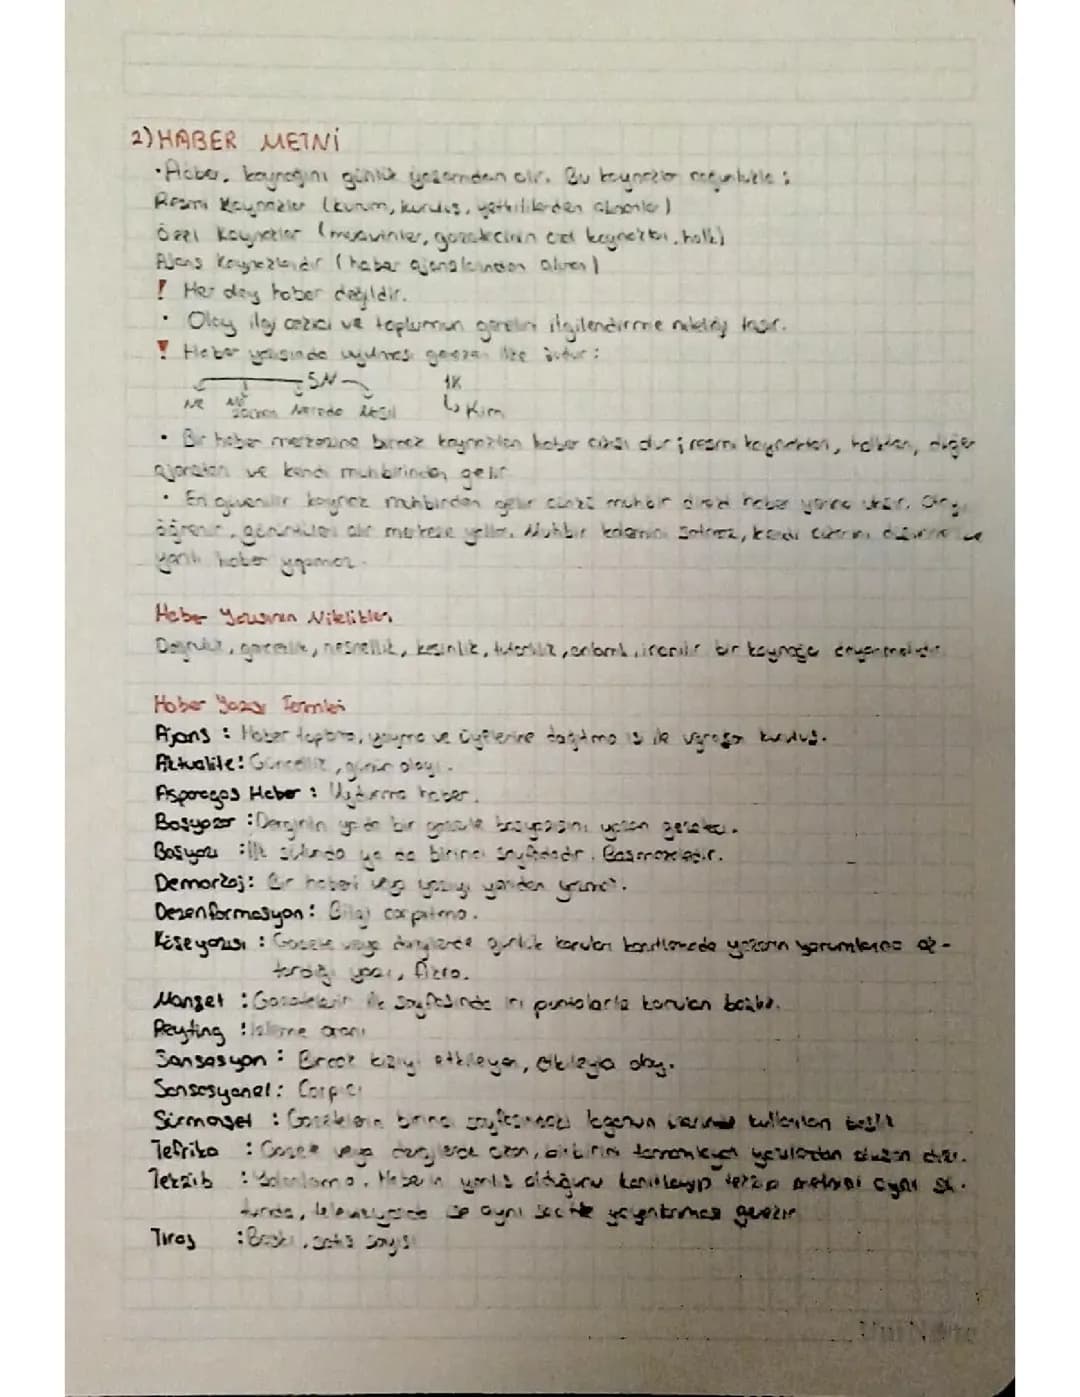 2) HABER METNİ
• Haber, kaynağını günlük yaşamdan alır. Bu kaynaklar
Resmi Kaynaklar (kurum, kuruluş, yetkililerden alınanlar)
Özel Kaynaklar (muavinler, gazetecinin özel kaynakları, halk)
Ajans Kaynaklarıdır (haber ajanslarından alınan)
! Her olay haber değildir.
• Olay ilgi çekici ve toplumun genelini ilgilendirme niteliği taşır.
! Haber yazısında uyulması gereken ilke
5N 1K
Ne Ne zaman Nerede Nasıl Kim
• Bir haber merkezine birçok kaynaktan haber akışı olur; resmi kaynaktan, halktan, diğer
ajanstan ve kendi muhbirinden gelir.
• En güvenilir kaynak muhbirden gelir çünkü muhbir direkt haber yerine
öğrenir, görüntüleri alır merkeze yollar. Muhbir kalemini satmaz, kendi çıkarını
yanlı haber yapamaz.
Haber Yazısının Nitelikleri
Doğruluk, güncellik, nesnellik, kesinlik, tutarlılık, inanılır bir kaynağa dayanmalıdır
Haber Yazısı Terimleri
Ajans : Haber toplama, yayma ve üyelerine dağıtma işi ile uğraşan kuruluş.
Aktualite: Güncellik, günün olayı.
Asparagas Haber : Uydurma haber.
Başyazar : Derginin ya da bir gazete başyazısını yazan gazeteci.
Başyazı : İlk sütunda ya da birinci sayfadadır. Başmakaledir.
Demarkaj: Bir haberi veya yazıyı yeniden yazma.
Dezenformasyon: Bilgi çarpıtma.
Köşe yazısı : Gazete veya dergilerde günlük konuları yazarın yorumlarına
yazı, fıkra.
Manşet : Gazetelerin ilk sayfasında iri puntolarla konulan başlık.
Reyting : İzlenme oranı
Sansasyon : Birçok kişiyi etkileyen, etkileyici olay.
Sansasyonel: Çarpıcı
Sürmanşet : Gazetelerin birinci sayfasındaki logonun üzerinde kullanılan başlık
Tefrika : Gazete veya dergilerde çıkan, birbirini tamamlayan yazılardan oluşan dizi.
Tekzib : Yalanlama. Haberin yanlış olduğunu kanıtlayıp tekzip metnini aynı sü-
tunda, televizyonda ise aynı saatte yayınlanması gerekir
Tiraj : Baskı, satış sayısı